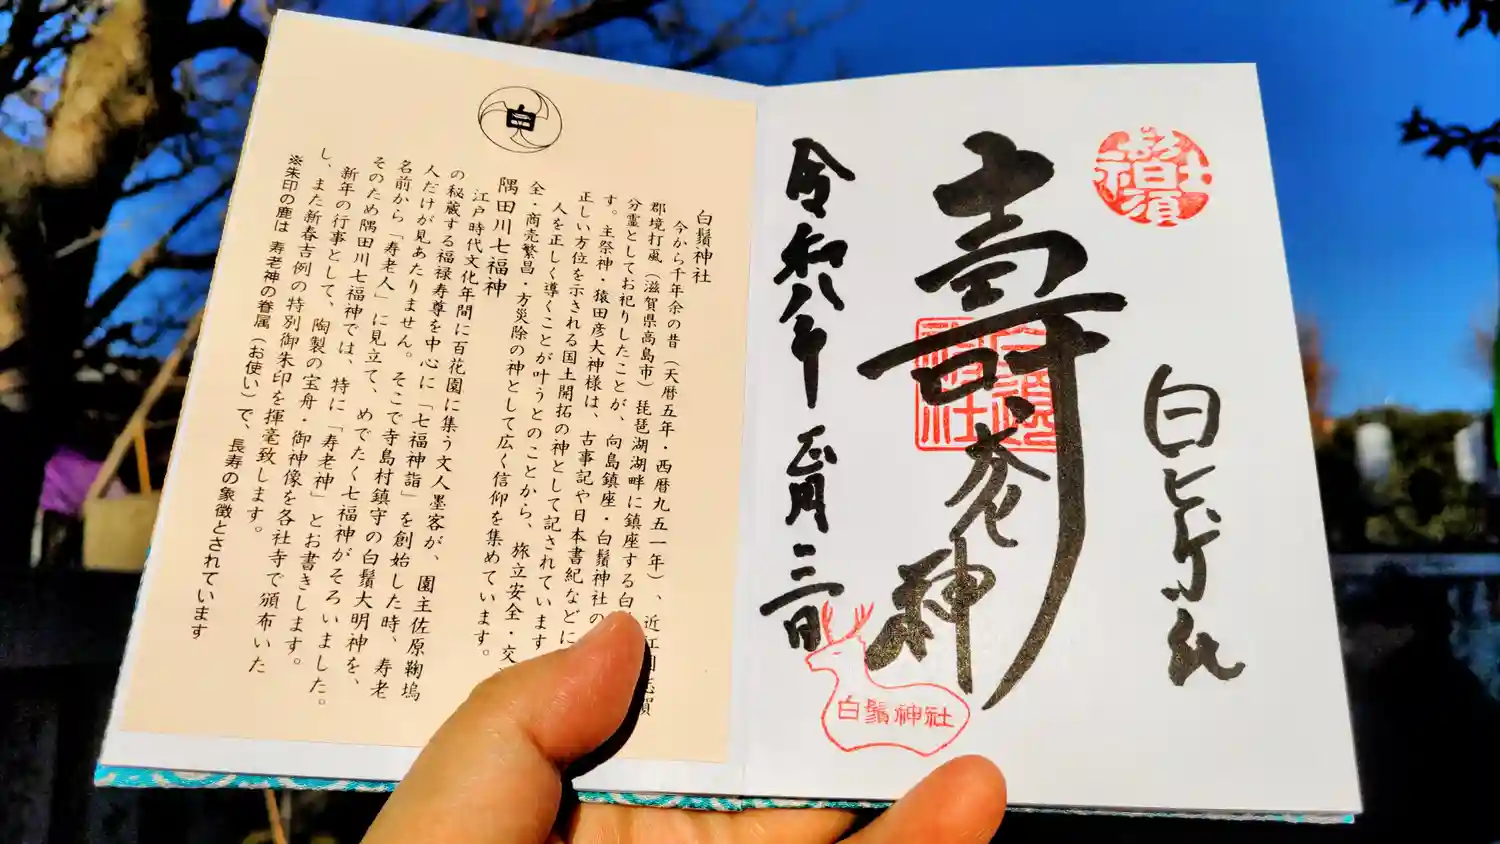 白
白鬚神社
今から千年余の昔（天暦五年・西暦九五一年）、近江国志賀
郡境打颪（滋賀県高島市）琵琶湖湖畔に鎮座する白
分霊としてお祀りしたことが、向島鎮座・白鬚神社の
す。主祭神・猿田彦大神様は、古事記や日本書紀などに
正しい方位を示される国土開拓の神として記されています
人を正しく導くことが叶うとのことから、旅立安全・交
全・商売繁昌・方災除の神として広く信仰を集めています。
隅田川七福神
江戸時代文化年間に百花園に集う文人墨客が、園主佐原鞠塢
の秘蔵する福禄寿尊を中心に「七福神詣」を創始した時、寿老
人だけが見あたりません。そこで寺島村鎮守の白鬚大明神を、
名前から「寿老人」に見立て、めでたく七福神がそろいました。
そのため隅田川七福神では、特に「寿老神」とお書きします。
新年の行事として、陶製の宝舟・御神像を各社寺で頒布いた
し、また新春吉例の特別御朱印を揮毫致します。
※朱印の鹿は 寿老神の眷属（お使い）で、長寿の象徴とされています
白鬚神社
寿老神
令和八年 正月三日
白鬚神社